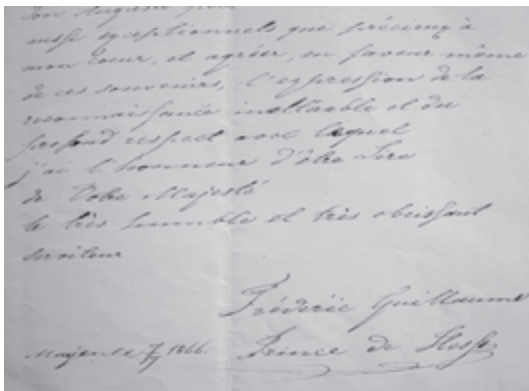 son auguste
aussi exceptionnels que précieux à
mon coeur, et agréer, en faveur même
de ces souvenirs, l'expression de la
reconnaissance inaltérable et du
profond respect avec lequel
j'ai l'honneur d'être Sire
de Votre Majesté
le très humble et très obéissant
serviteur
Fréderic Guillaume
Mayence 7/ 1866. Prince de Hesse